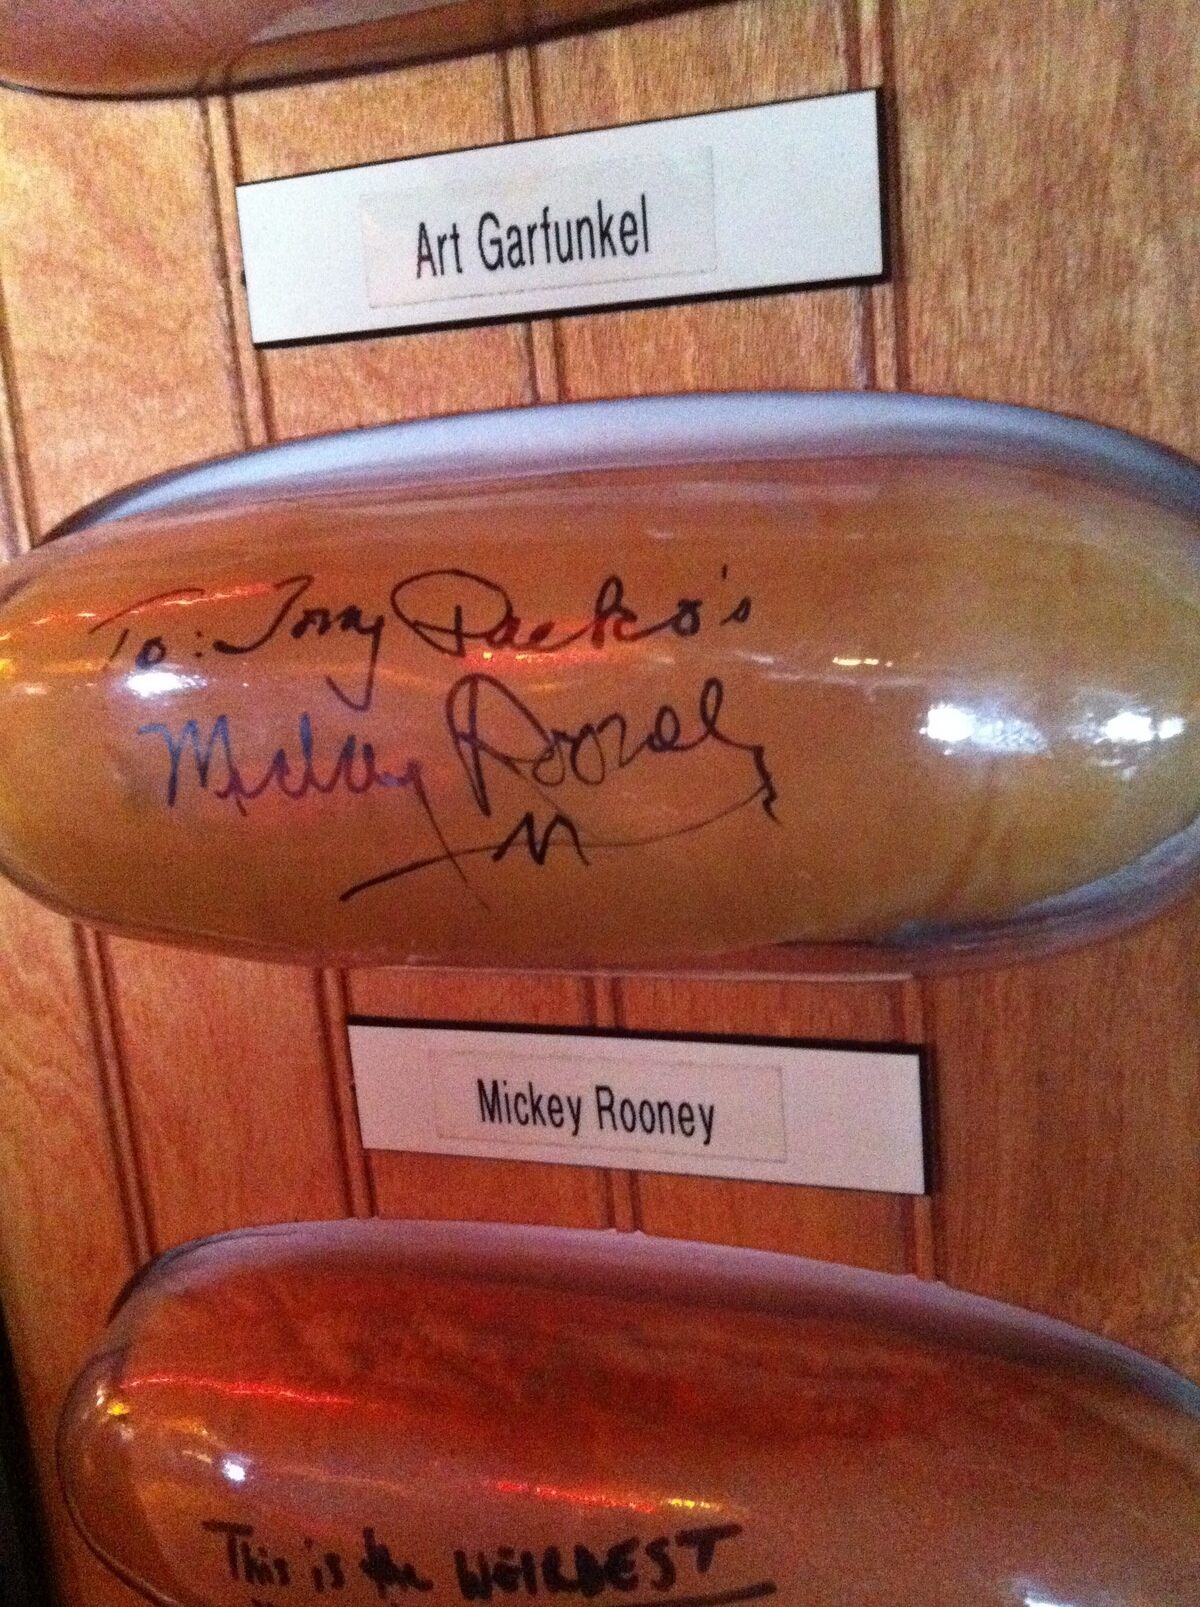 Art Garfunkel
To: Tony Packo's
Mickey Rooney
Mickey Rooney
This is the WEIRDEST